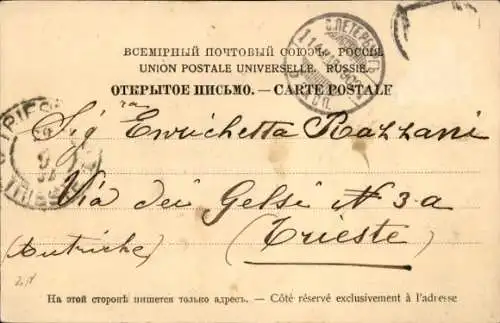 ВСЕМІРНЫЙ ПОЧТОВЫЙ СОЮЗЪ. РОССІЯ.
UNION POSTALE UNIVERSELLE. RUSSIE.
ОТКРЫТОЕ ПИСЬМО. — CARTE POSTALE
С. ПЕТЕРБУРГЪ
Sigra Enrichetta Razzani
Via dei Gelsi N 3-a
(Autriche) (Trieste)
На этой сторонѣ пишется только адресъ. — Côté réservé exclusivement à l'adresse